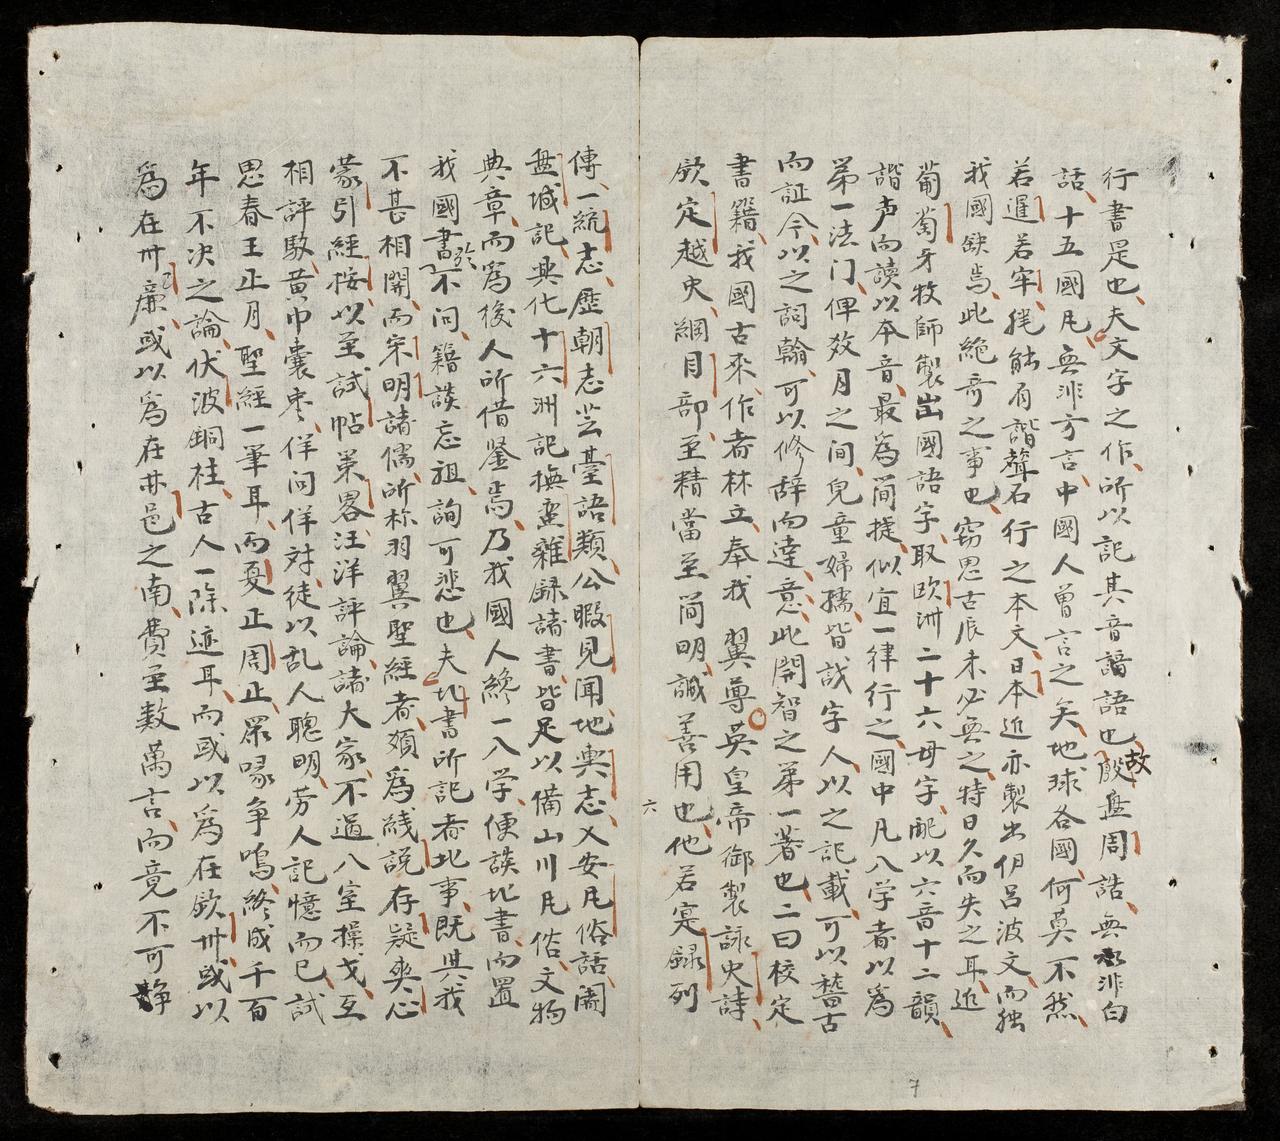 行書是也夫文字之作所以記其音語語也故殷盘周誥無非白
話十五國凡無非方言中國人曾言之矣地球各國何莫不然
若暹若牢猶能有諧聲右行之本文日本近亦製出伊呂波文而独
我國缺焉此絶奇之事也窃思古辰未必無之特日久而失之耳近
葡萄牙牧師製出國語字取欧洲二十六母字配以六音十二韻
諧声而讀以本音最為简捷似宜一律行之國中凡入学者以為
第一法门俾效月之间兒童婦孺皆識字人以之記載可以嵇古
而証今以之詞翰可以修辞而達意此開智之第一著也二曰校定
書籍我國古來作者林立奉我 翼尊英皇帝御製詠史詩
欽定越史綱目部至精當至简明誠善用也他若寔録列
六
7
傳一統志歷朝志芸臺語類公暇見聞地輿志乂安凡俗話閙
盘城記興化十六洲記撫蛮雜録諸書皆足以備山川凡俗文物
典章而為後人所借鉴焉乃我國人終一入学便談北書而置
我國書於不问籍談忘祖詢可悲也夫北書所記者北事既與我
不甚相關而宋明諸儒所称羽翼聖經者頗為綫説存疑爽心
蒙引經桉以至試帖策畧汪洋評論諸大家不過入室操戈互
相評駁黄巾囊枣佯问佯対徒以乱人聰明劳人記憶而已試
思春王正月聖經一筆耳而夏正周正眾喙争鳴終成千百
年不决之論伏波銅柱古人一陈迹耳而或以為在欽卅或以
為在卅廉或以為在林邑之南費至数萬言而竟不可